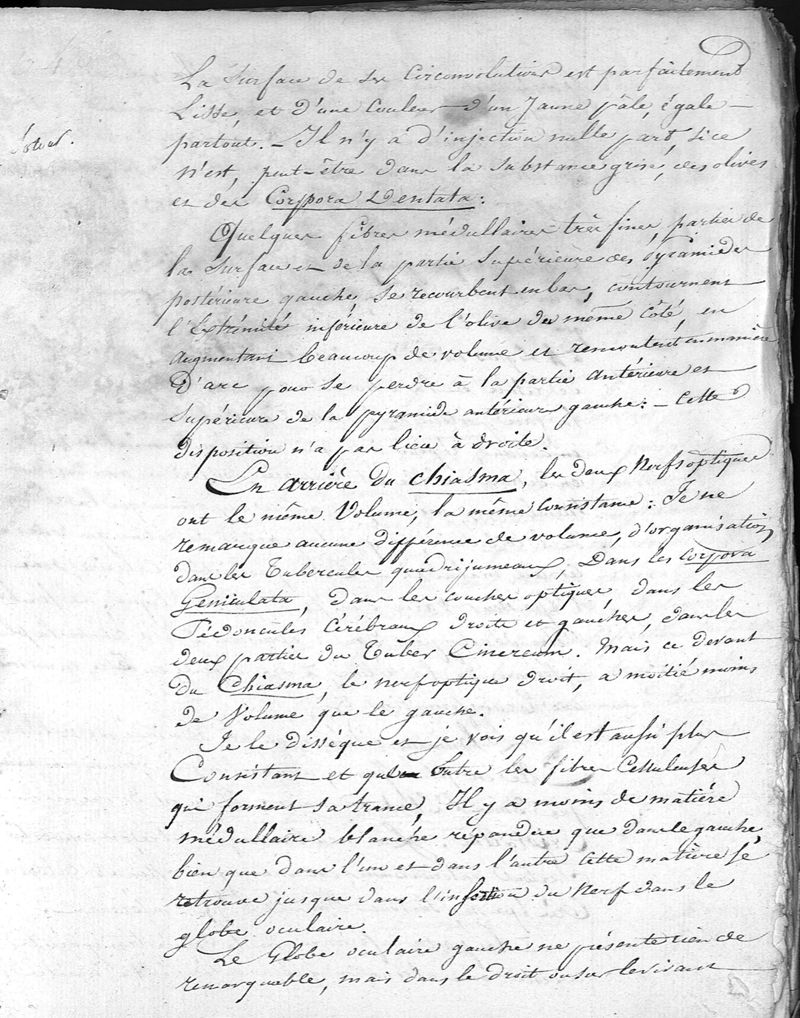 La Surface de ses Circonvolutions est parfaitement
Lisse, et d'une Couleur d'un Jaune pâle, égale
partout. - Il n'y a d'injection nulle part, si ce
n'est, peut-être dans la Substance grise, des olives
et des Corpora Dentata:
Quelques fibres médullaires très fines, parties de
la Surface et de la partie Supérieure des Pyramides
postérieure gauche, se recourbent en bas, contournent
l'Extrémité inférieure de l'olive du même côté, en
augmentant beaucoup de volume et remontent en manière
D'arc pour se perdre à la partie antérieure et
Supérieure de la pyramide antérieure gauche: - Cette
disposition n'a pas lieu à droite.
En arrière du Chiasma, les deux Nerfs optiques
ont le même Volume, la même Consistance: Je ne
remarque aucune différence de volume, d'organisation
dans les Tubercules quadrijumeaux, Dans les Corpora
Geniculata, dans les couches optiques, dans les
Pédoncules Cérébraux droits et gauches, dans les
deux parties du Tuber Cinereum. Mais ce devant
du Chiasma, le nerf optique droit, a moitié moins
de Volume que le gauche.
Je le dissèque et je vois qu'il est aussi plus
Consistant et qu'entre les fibres Celluleuses
qui forment sa trame, Il y a moins de matière
médullaire blanche répandue que dans le gauche,
bien que dans l'un et dans l'autre Cette matière se
retrouve jusque dans l'insertion du Nerf dans le
globe oculaire.
Le Globe oculaire gauche ne présente rien de
remarquable, mais dans le droit on